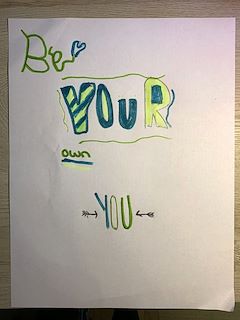 Be
YOUR
own
YOU